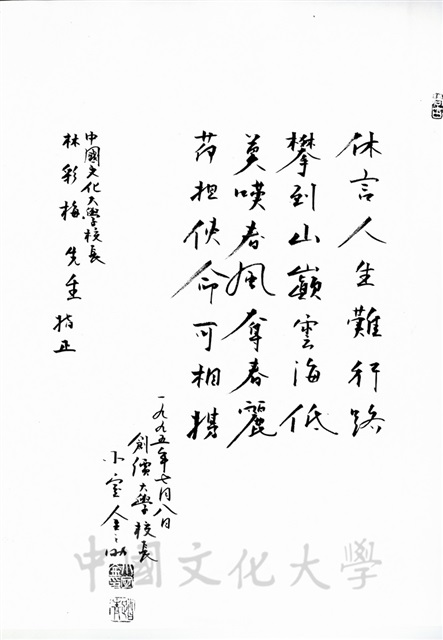 休言人生難行路
攀到山巔雲海低
莫嘆春風奪春麗
荷担使命可相携
中國文化大學校長
林彩梅先生指正
一九九五年七月八日
創價大學校長
小室金之助
中國文化大學